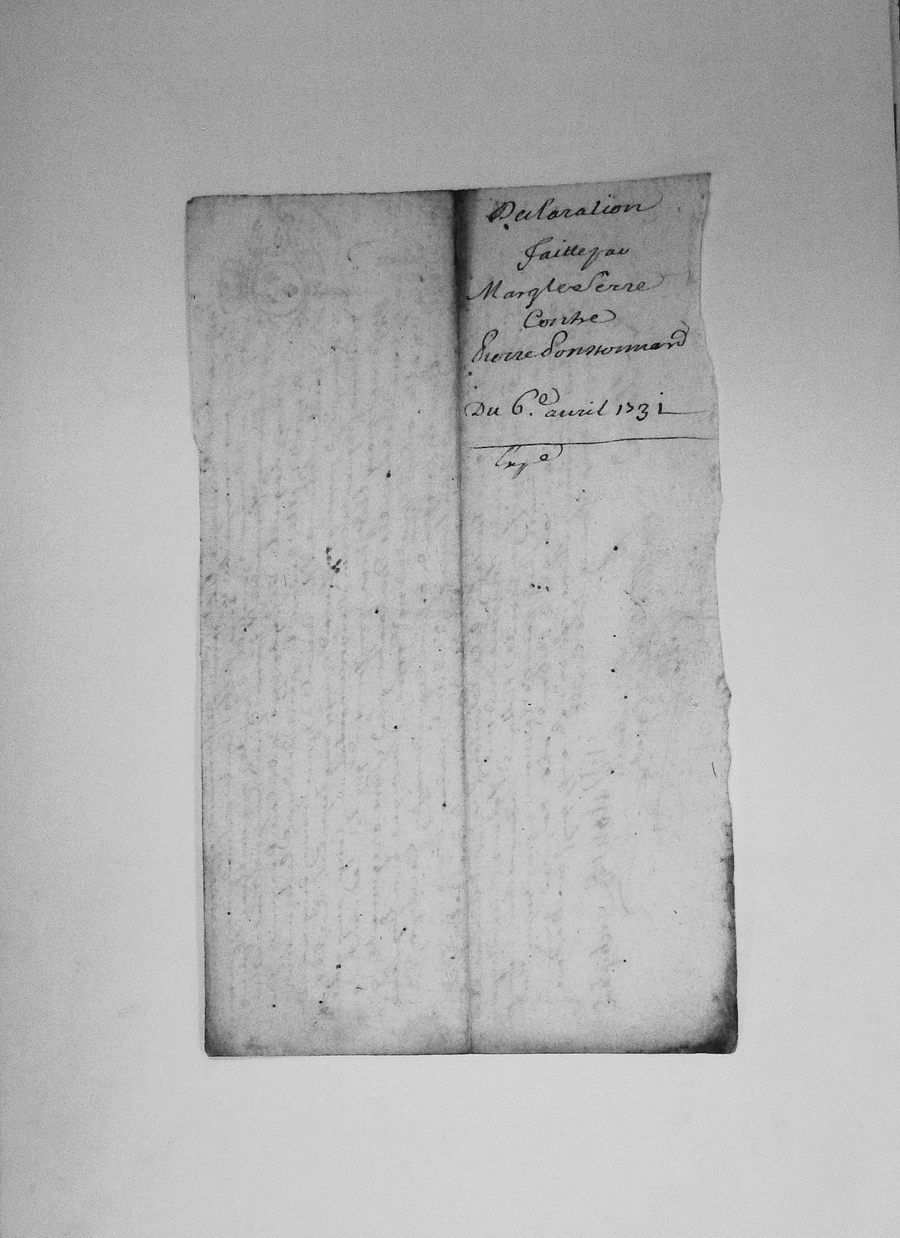 Declaration
faitte par
Margte Serre
Contre
Pierre Ponsonnard
Du 6e avril 1731
Expe